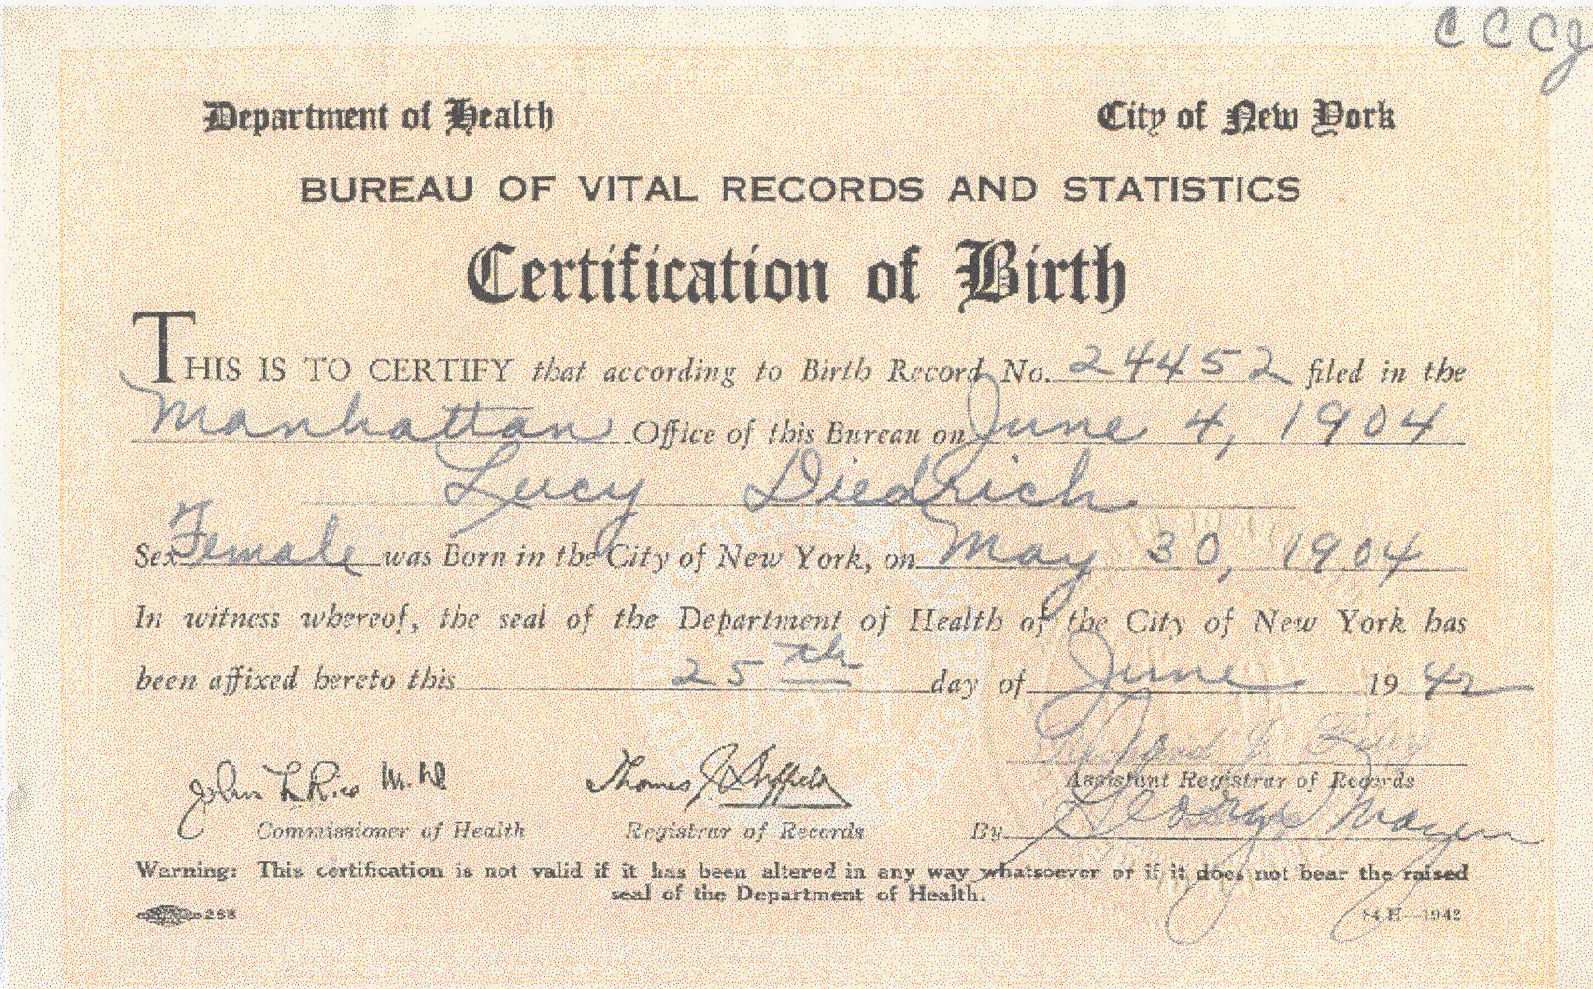 C C C
Department of Health City of New York
BUREAU OF VITAL RECORDS AND STATISTICS
Certification of Birth
THIS IS TO CERTIFY that according to Birth Record No. 24452 filed in the
Manhattan Office of this Bureau on June 4, 1904
Lucy Diedrich
Sex Female was Born in the City of New York, on May 30, 1904
In witness whereof, the seal of the Department of Health of the City of New York has
been affixed hereto this 25th day of June 1942
Assistant Registrar of Records
John L Rice M.D. Thomas J. Duffield
Commissioner of Health Registrar of Records By George Mayer
Warning: This certification is not valid if it has been altered in any way whatsoever or if it does not bear the raised
seal of the Department of Health.
288 84 H—1942